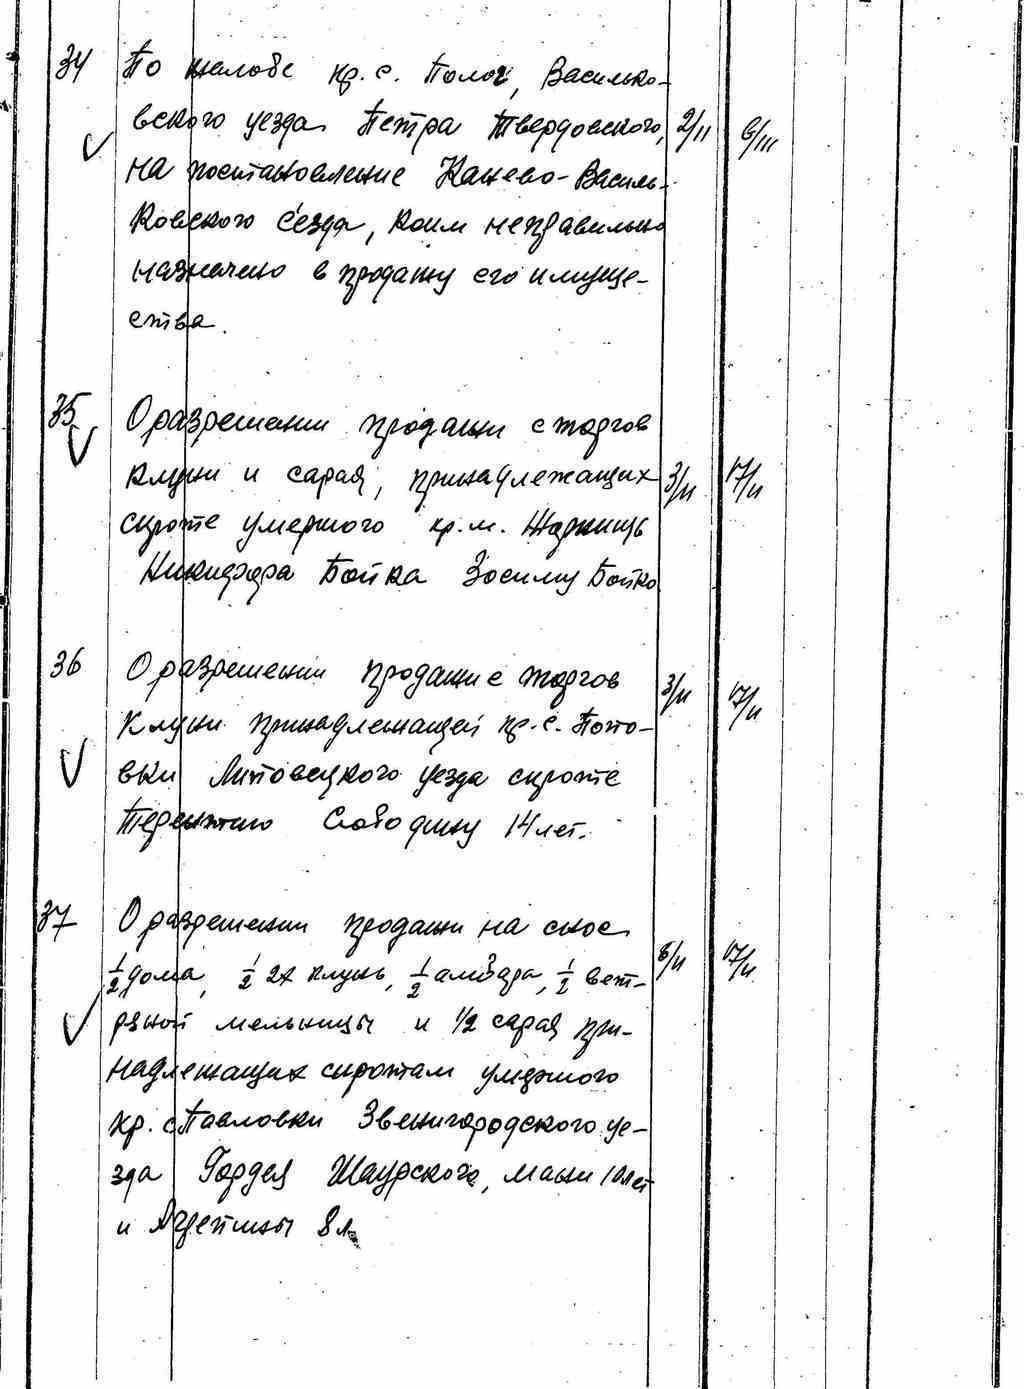 34 По жалобе кр. с. Полог, Василько-
вского уезда Петра Твердовского, 2/II 6/III
на постановление Канево-Василь-
ковского с'езда, коим неправильно
назначено в продажу его имуще-
ства.
35 О разрешении продажи с торгов
клуни и сарая, принадлежащих 3/II 17/II
сироте умершого кр. м. Жорнищь
Никифора Бойка Зосиму Бойко
36 О разрешении продажи с торгов 3/II 17/II
клуни принадлежащей кр. с. Попо-
вки Липовецкого уезда сироте
Терентию Слободяну 14 лет.
37 О разрешении продажи на снос
1/2 дома, 1/2 2х клунь, 1/2 амбара, 1/2 вет- 6/II 17/II
ряной мельницы и 1/2 сарая при-
надлежащих сиротам умершого
кр. с Павловки Звенигородского уе-
зда Гордея Шаурского, 10 лет
и 8 л.